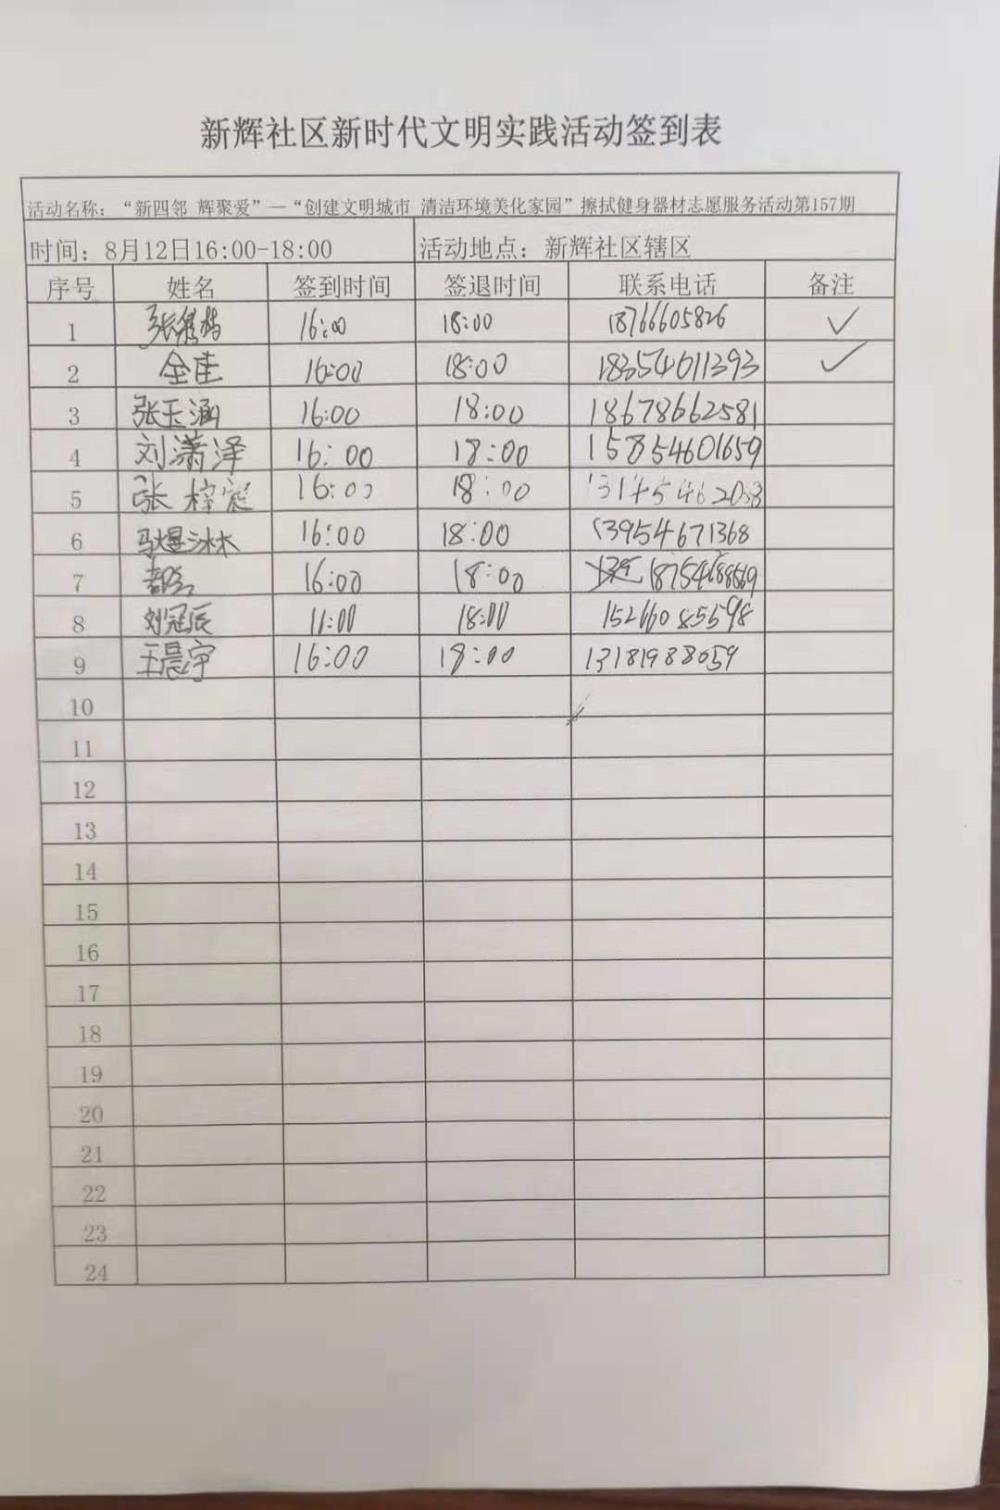 新辉社区新时代文明实践活动签到表
活动名称：“新四邻 辉聚爱”—“创建文明城市 清洁环境美化家园”擦拭健身器材志愿服务活动第157期
时间：8月12日16:00-18:00 活动地点：新辉社区辖区
序号 姓名 签到时间 签退时间 联系电话 备注
1 张 16:00 18:00 18766605826 ✓
2 全佳 16:00 18:00 18354611393 ✓
3 张玉涵 16:00 18:00 18678662581
4 刘潇泽 16:00 18:00 15854601659
5 张梓 16:00 18:00
6 马 16:00 18:00 13954671368
7 16:00 18:00
8 刘冠辰 18:00 15266085598
9 王晨宇 16:00 18:00 13181988059
10
11
12
13
14
15
16
17
18
19
20
21
22
23
24